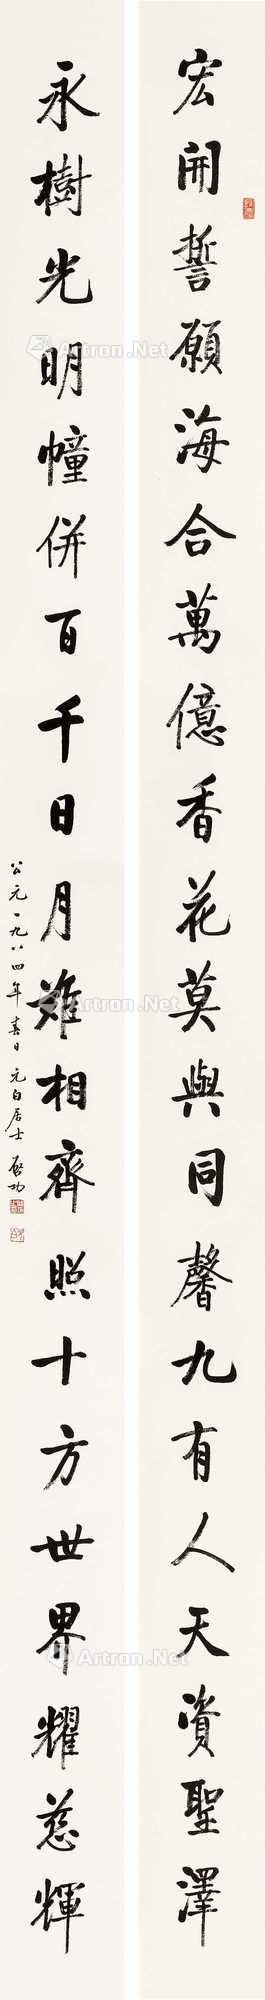 宏開誓願海合萬億香花莫與同馨九有人天資聖澤
永樹光明幢併百千日月難相齊照十方世界耀慈輝
公元一九八四年春日 元白居士 啟功
Artron.Net
Artron.Net
Artron.Net
Artron.Net
Artron.Net
Artron.Net